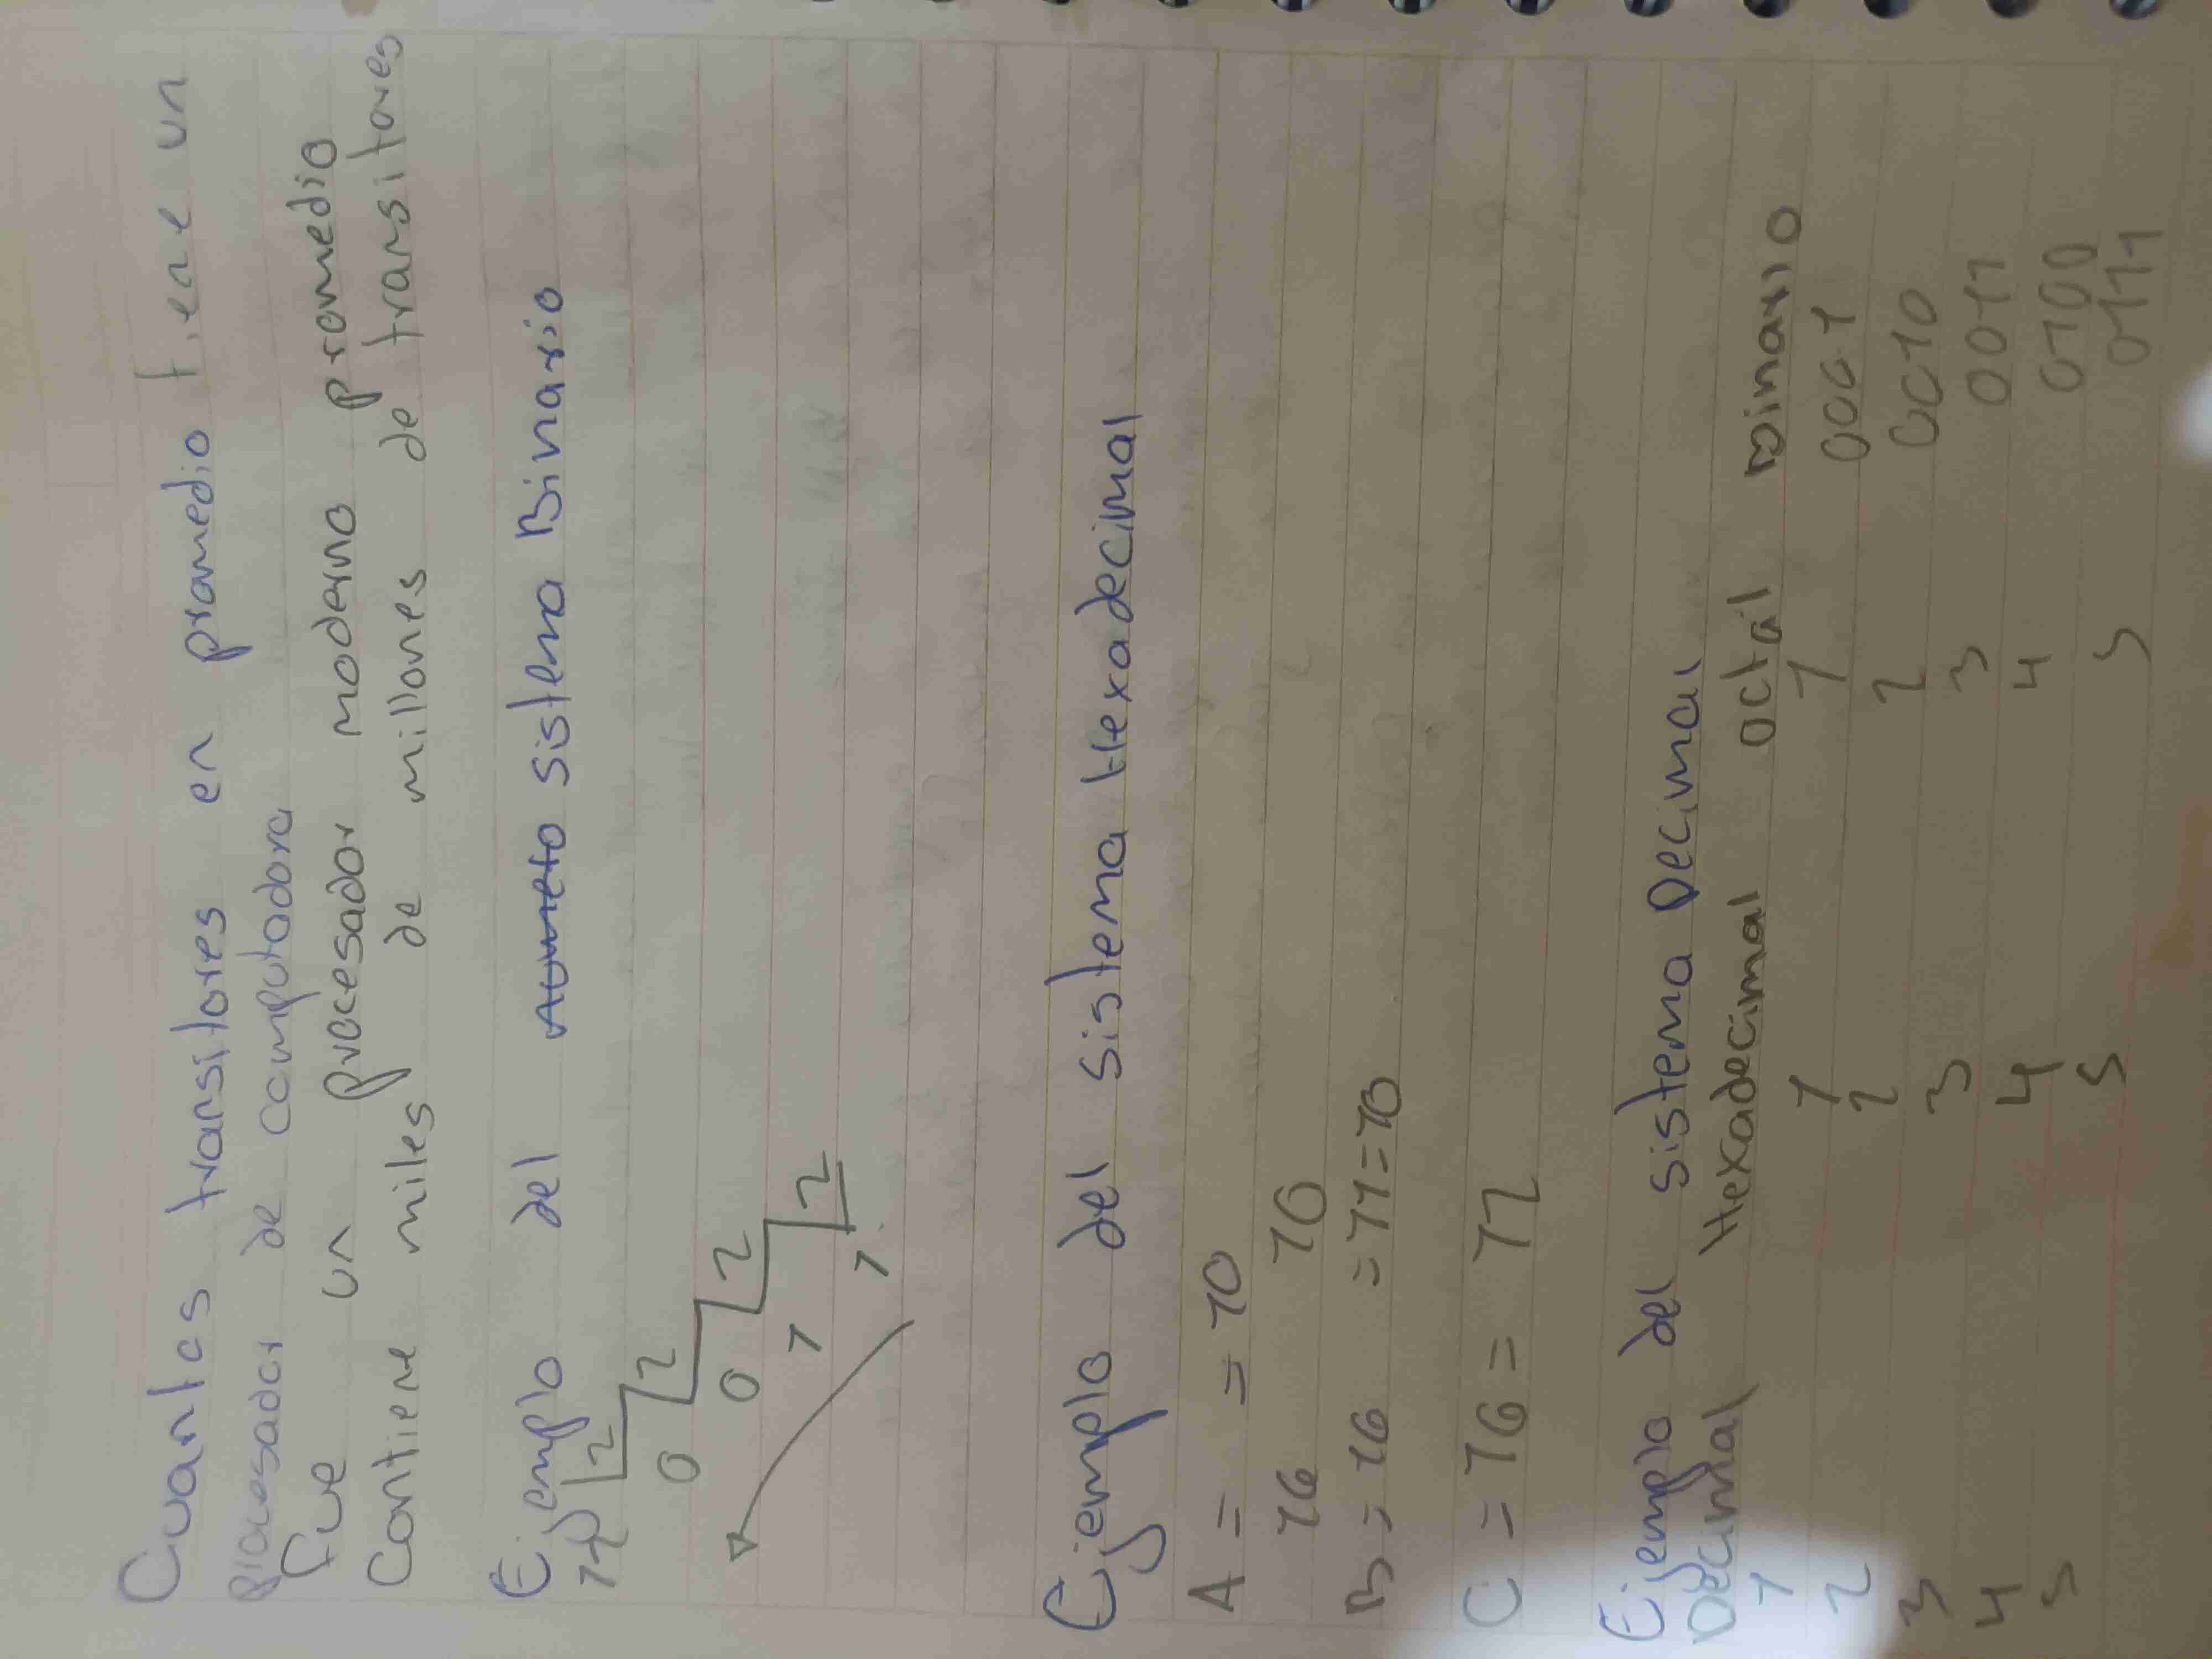 Cuantos transitores en promedio tiene un
procesador de computadora
fue un procesador moderno promedio
contiene miles de millones de transitores
Ejemplo del sistema Binario
2
0 2
0 2
1 2
1
Ejemplo del sistema Hexadecimal
A = = 10
16 16
B = 16 = 11 = 10
C = 16 = 12
Ejemplo del sistema Decimal
Decimal Hexadecimal octal Binario
1 1 1 0001
2 2 2 0010
3 3 3 0011
4 4 4 0100
5 5 5 0111